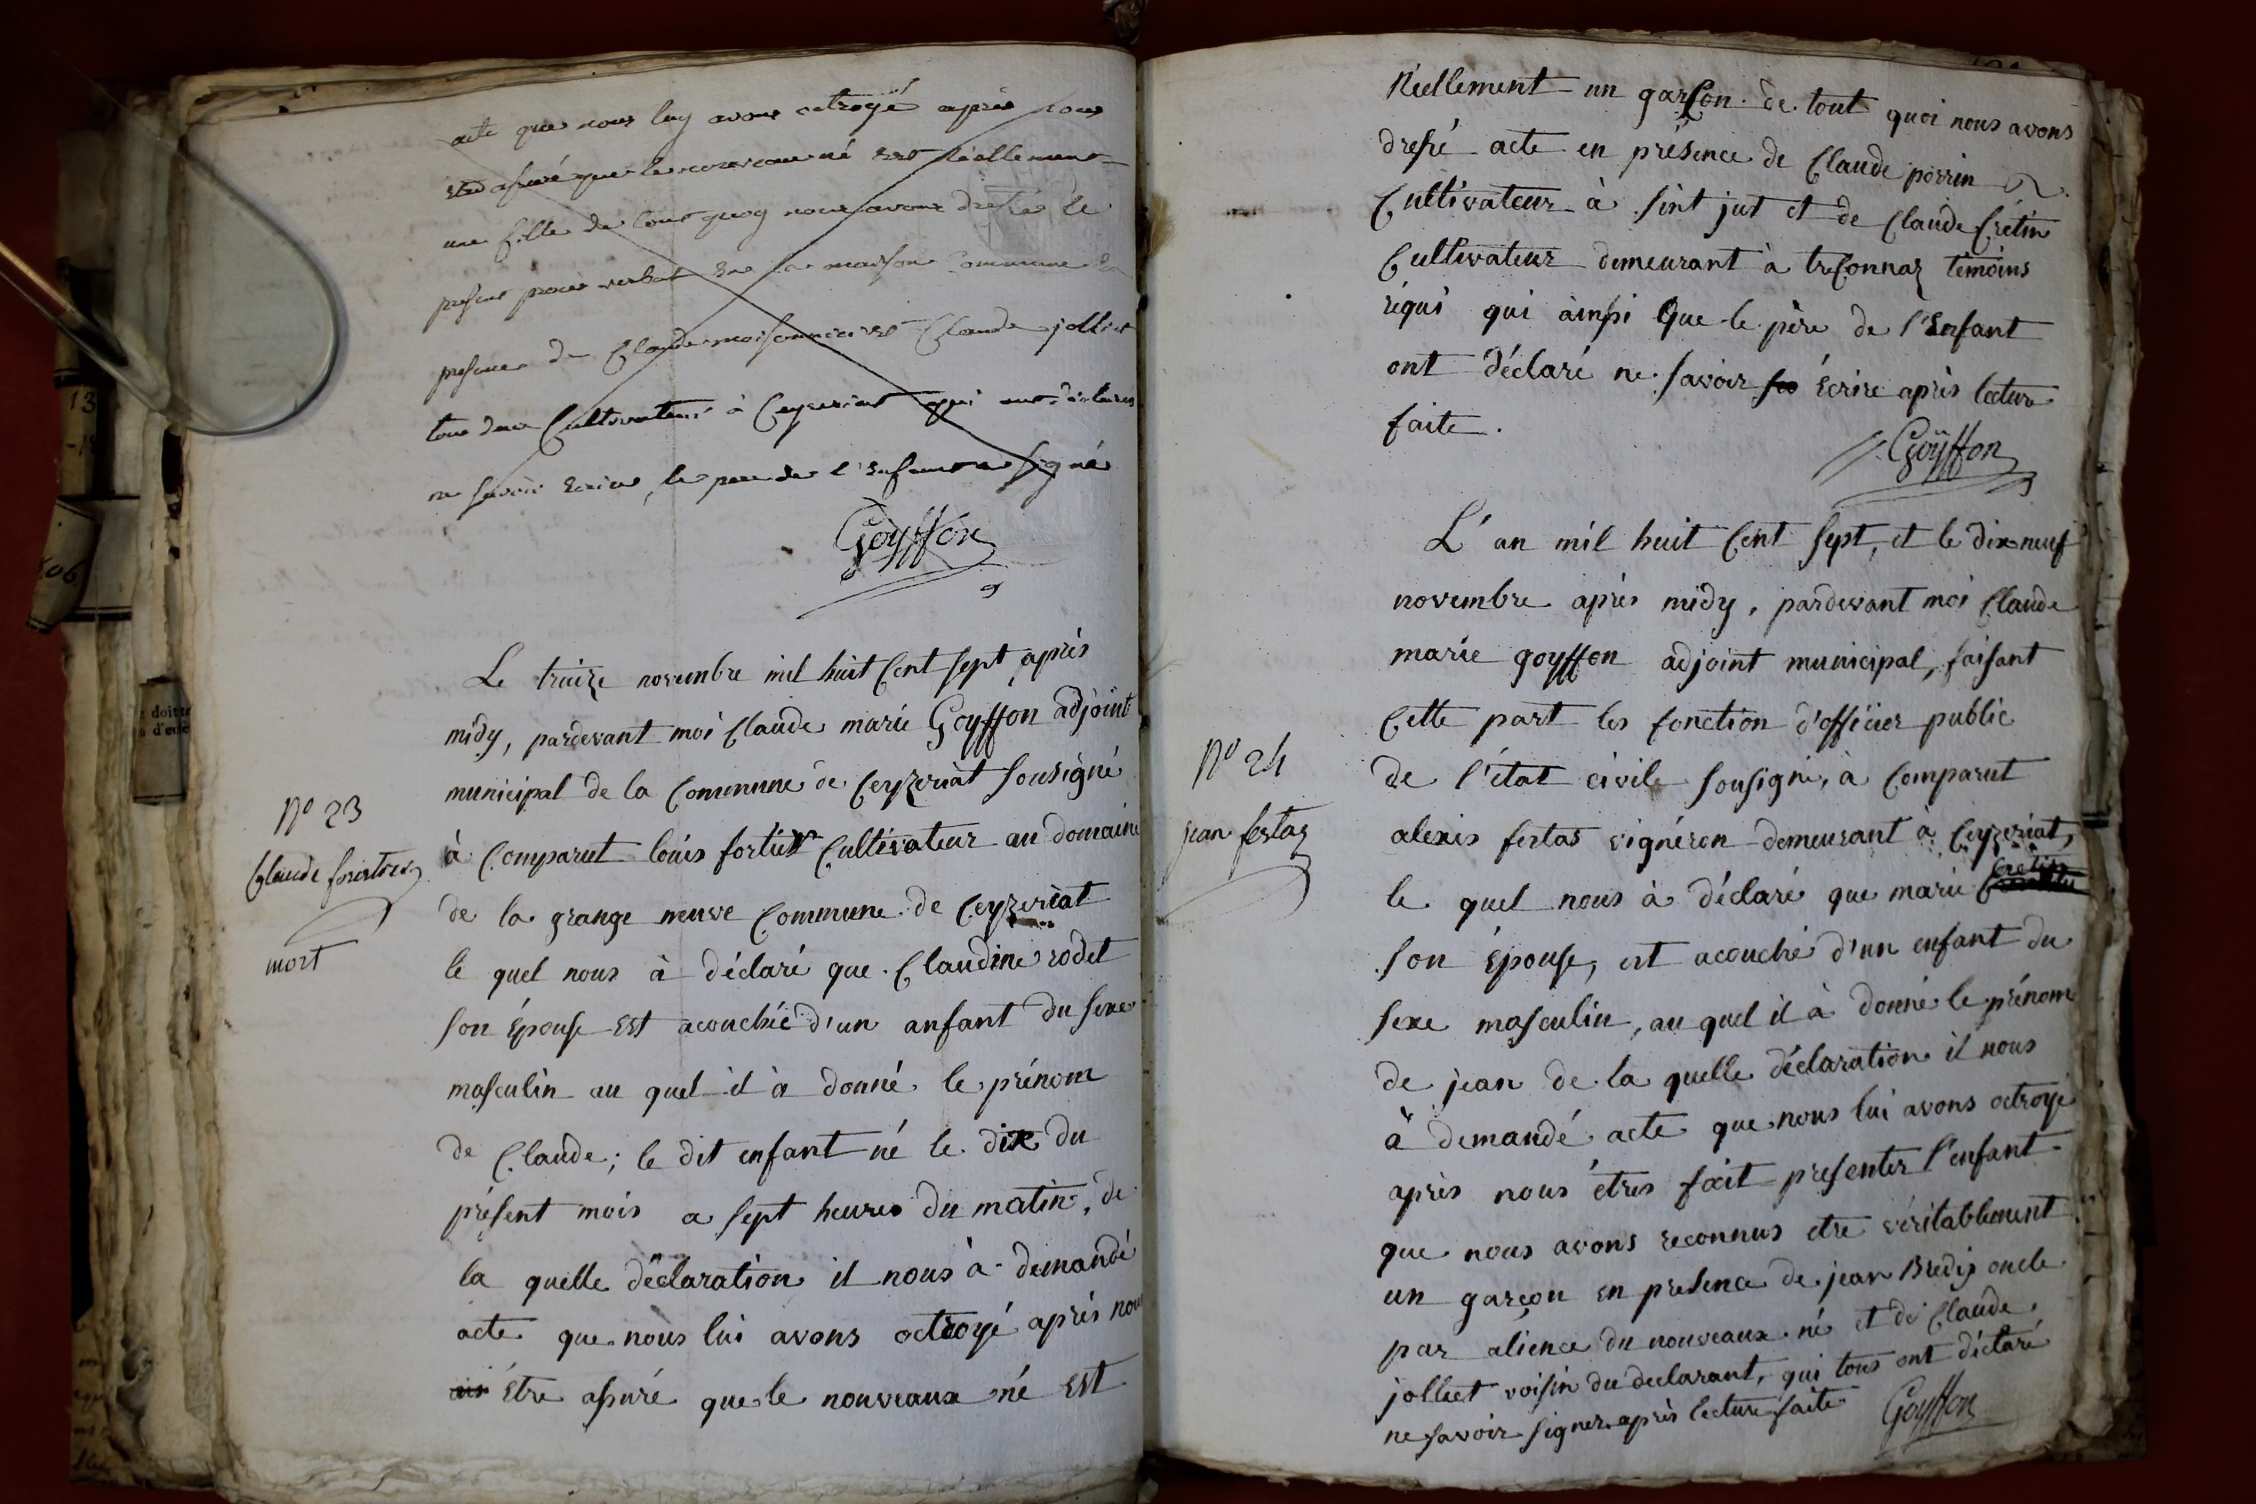 acte que nous luy avons octroyé après nous
être assuré que le nouveau né est réellement
une fille de tout quoy nous avons dressé le
present procès verbal en la maison Commune en
presence de Claude moissonnier et Claude jolliet
tous deux Cultivateurs à Ceyzeriat qui ont déclarés
ne savoir Ecrire, le pere de l'Enfant a signé
Goyffon
Le treize novembre mil huit Cent sept après
midy, pardevant moi Claude marie Goyffon adjoint
municipal de la Commune de Ceyzeriat sousigné
N° 23
Claude
mort
à Comparut louis fortier Cultivateur au domaine
de la grange neuve Commune de Ceyzeriat
le quel nous à déclaré que Claudine rodet
son Épouse Est acouchée d'un anfant du sexe
masculin au quel il à donné le prénom
de Claude; le dit enfant né le dix du
présent mois a sept heures du matin, de
la quelle déclaration il nous à demandé
acte que nous lui avons octroyé après nous
Etre assuré que le nouveaux né Est
Réellement un garçon de tout quoi nous avons
dressé acte en présence de Claude perrin
Cultivateur à sint jut et de Claude Crétin
Cultivateur demeurant à tresonnaz témoins
réqui qui ainssi Que le père de l'Enfant
ont déclaré ne savoir Écrire après lecture
faite.
Goyffon
L'an mil huit Cent sept, et le dix neuf
novembre après midy, pardevant moi Claude
marie goyffon adjoint municipal, faisant
Cette part les fonction d'officier public
de l'état civile sousigné, à Comparut
N° 24
jean fertaz
alexis fertas vignéron demeurant à Ceyzeriat,
le quel nous à déclaré que marie Cretin
son Épouse, est acouché d'un enfant du
sexe masculin, au quel il à donné le prénom
de jean de la quelle déclaration il nous
à demandé acte que nous lui avons octroyé
après nous étres fait presenter l'enfant
que nous avons reconnus etre véritablement
un garçon en presence de jean Bredix oncle
par alience du nouveaux né et de Claude
jolliet voisin du declarant, qui tous ont déclaré
ne savoir signer après lecture faite
Goyffon